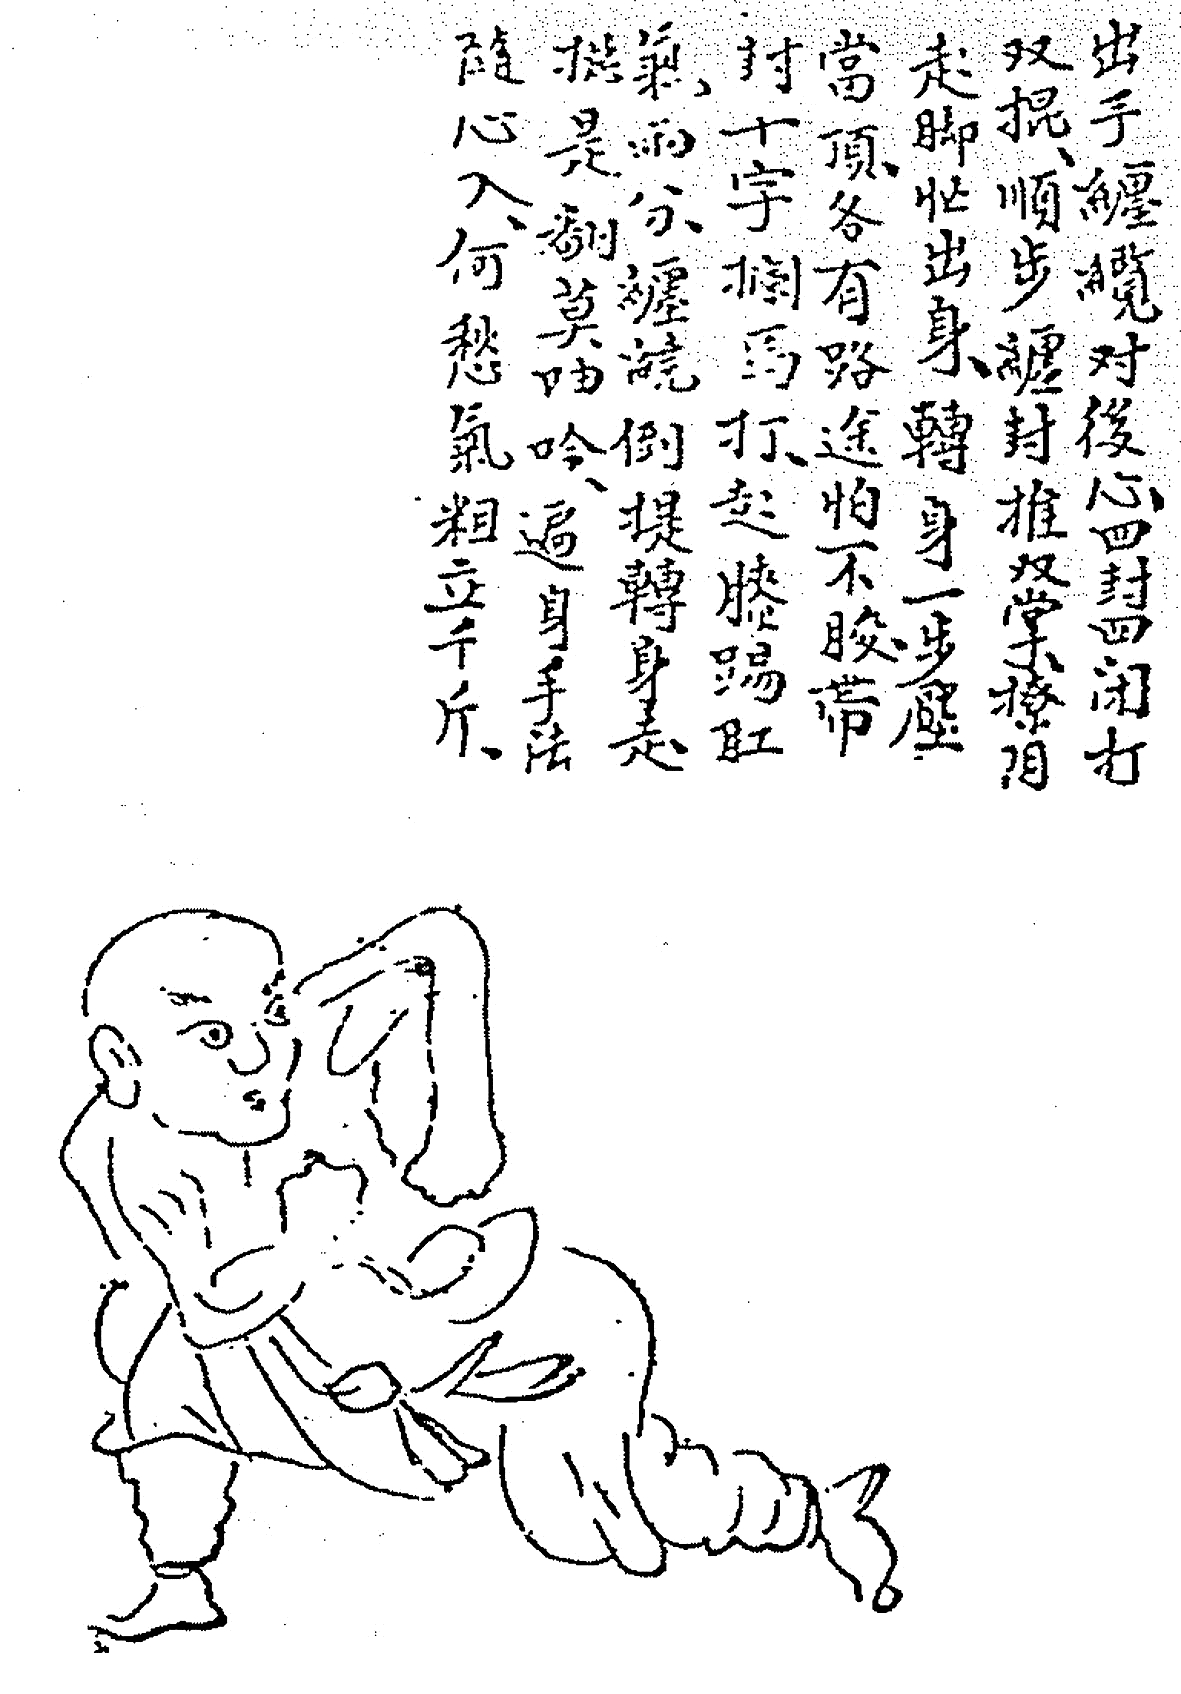 出手纏纜对後心、四封四闭打
双掍、順步纏封推双掌、撩阴
走脚忙出身、轉身一步壓
當頂、各有路途怕不胶、带
封十字攔馬打、起膝踢肛
氣、兩分、纏繞倒提轉身走
擺是翻莫呻吟、遍身手法
随心入、何愁氣粗立千斤、